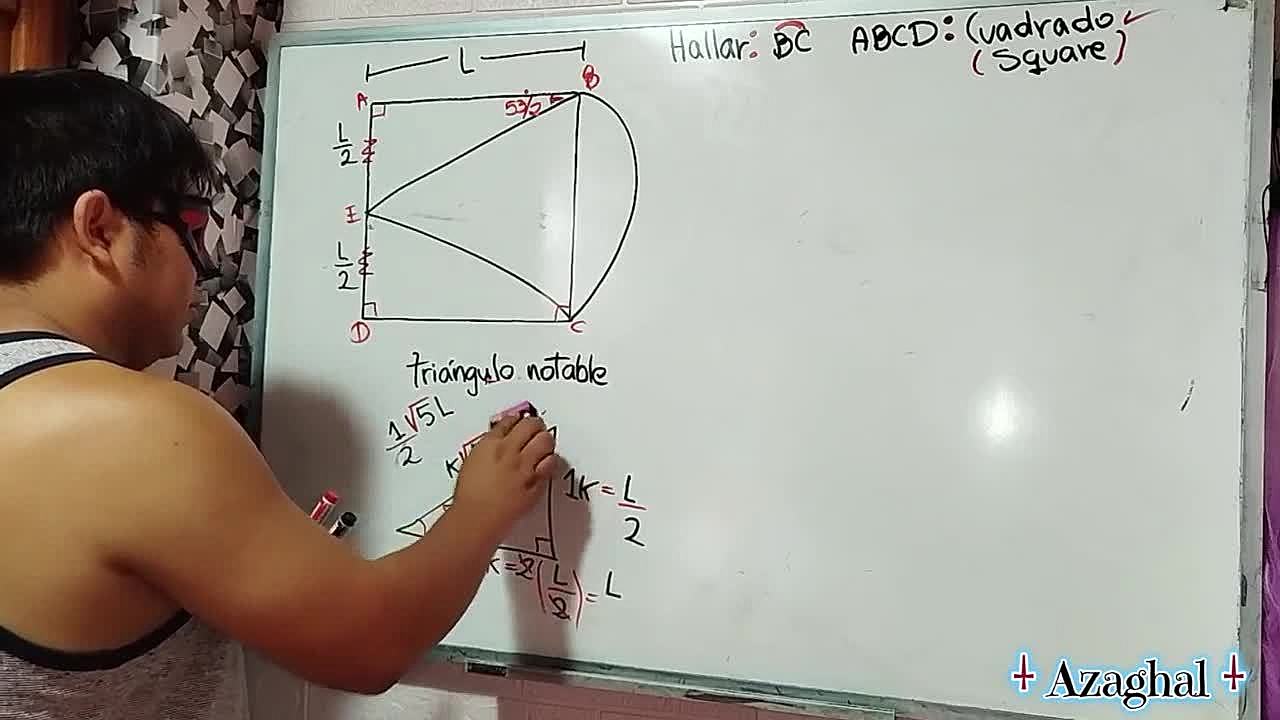 Hallar: BC ABCD: Cuadrado
(Square)
L
A B
53/2
L/2
E
L/2
D C
triángulo notable
1/2 √5L
K√
1K = L/2
K = 2(L/2) = L
Azaghal